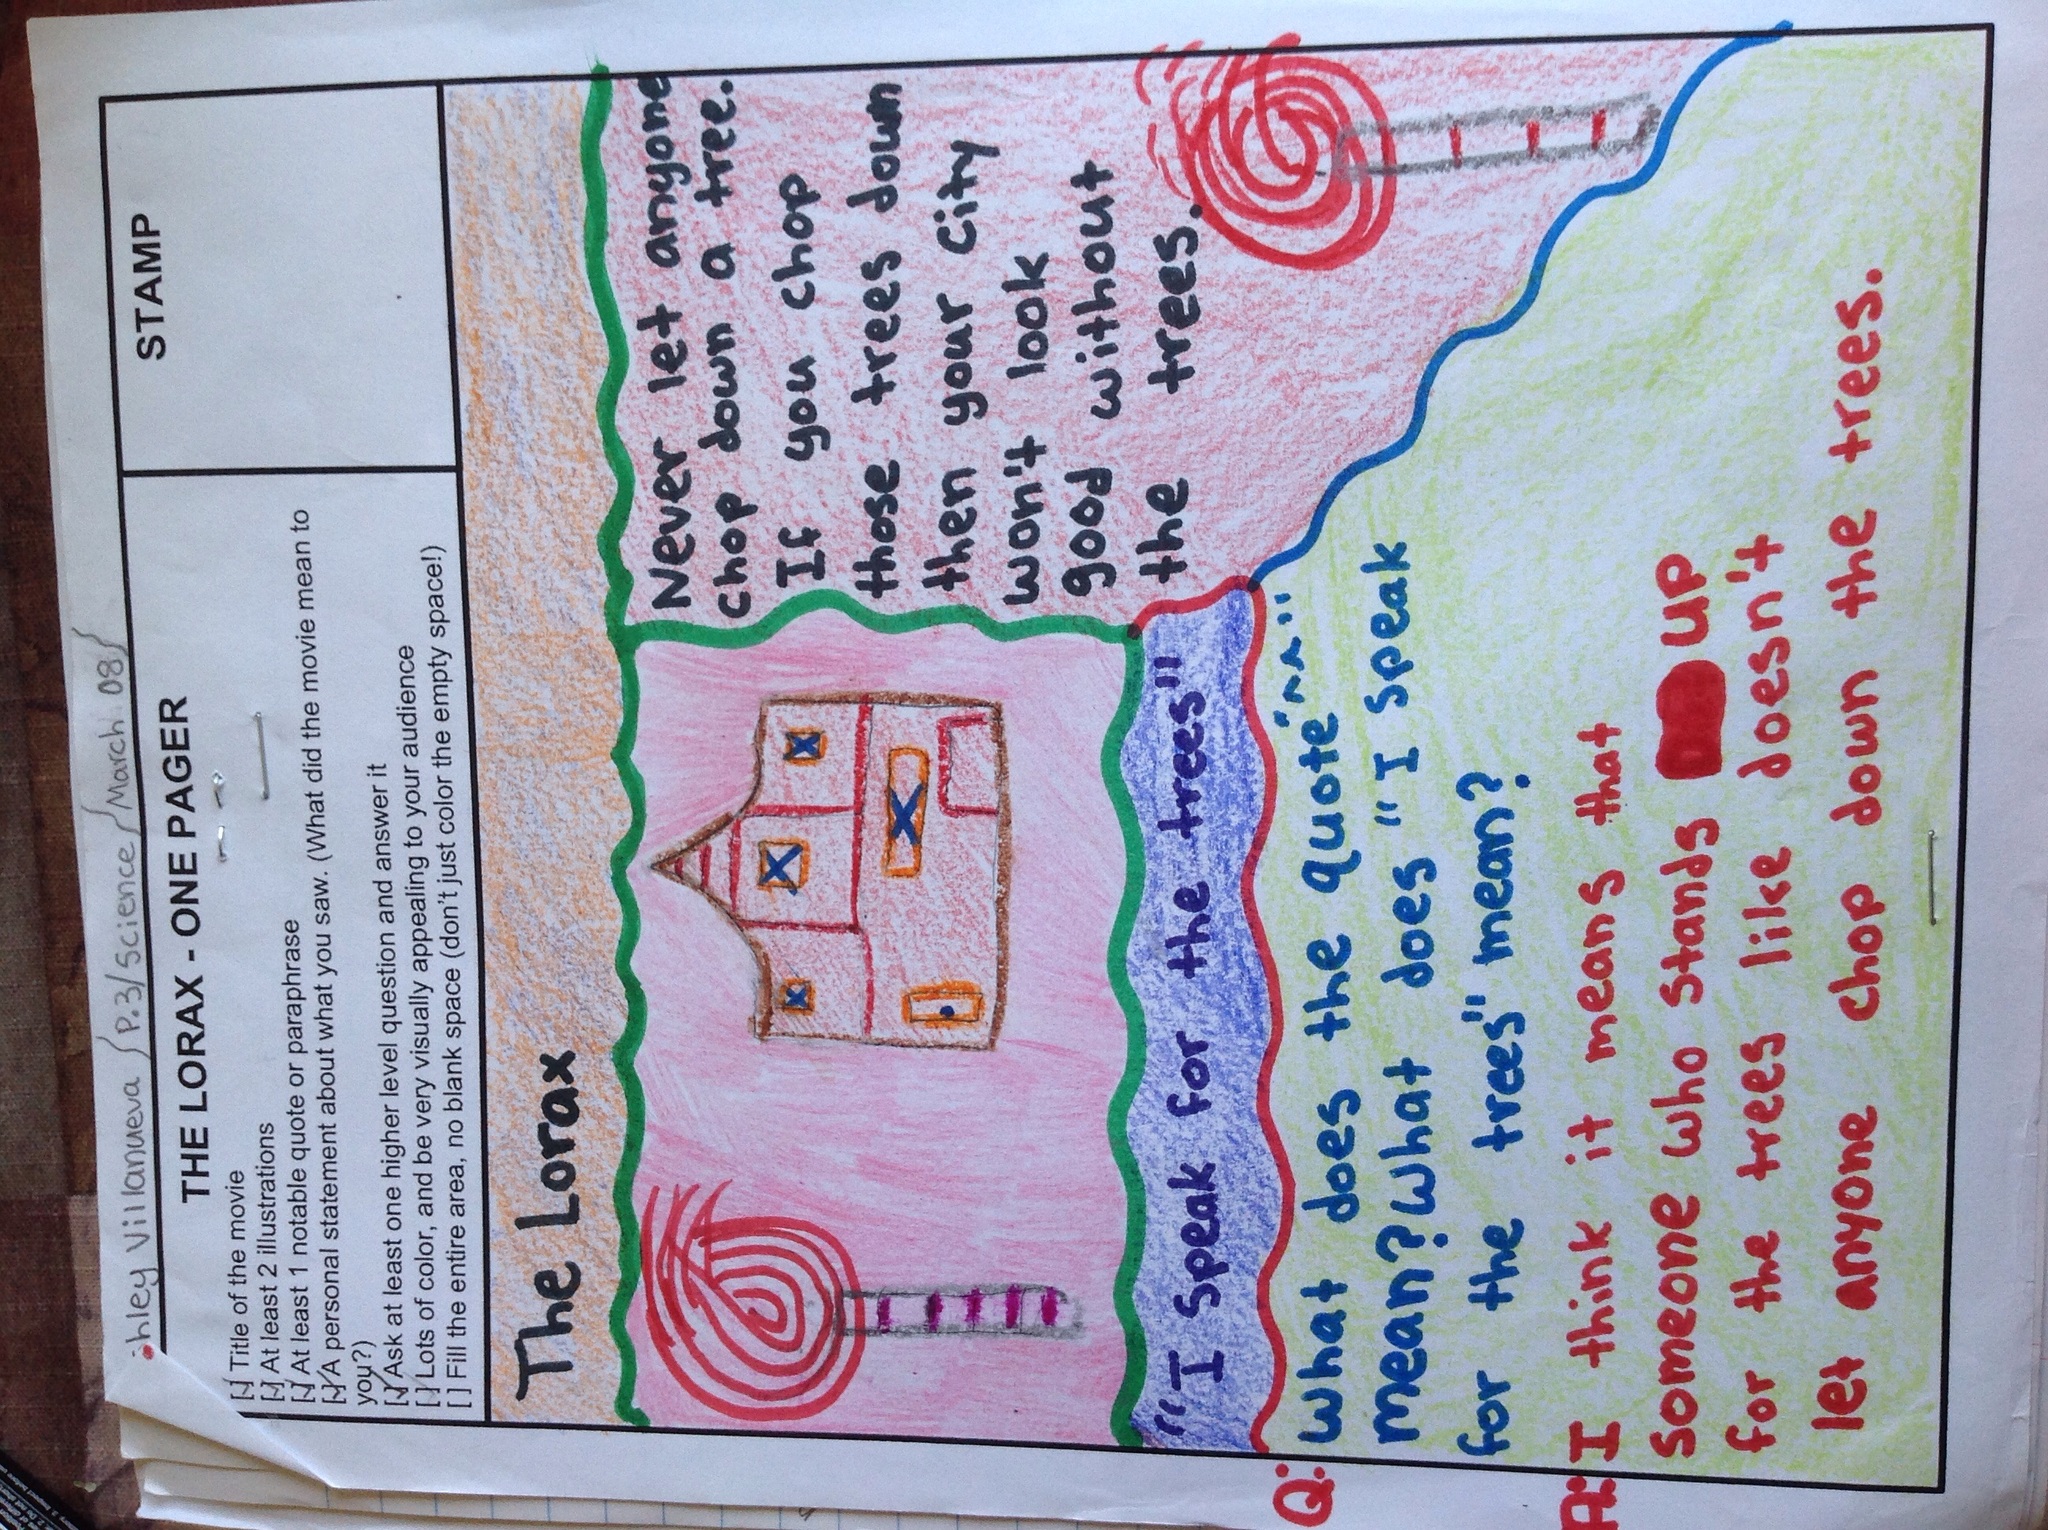 hley Villanueva / P.3/science/March 08/
THE LORAX - ONE PAGER
STAMP
[✓] Title of the movie
[✓] At least 2 illustrations
[✓] At least 1 notable quote or paraphrase
[✓] A personal statement about what you saw. (What did the movie mean to
you?)
[✓] Ask at least one higher level question and answer it
[✓] Lots of color, and be very visually appealing to your audience
[ ] Fill the entire area, no blank space (don't just color the empty space!)
The Lorax
Never let anyone
chop down a tree.
If you chop
those trees down
then your city
won't look
good without
the trees.
"I speak for the trees"
Q: What does the quote " "
mean? What does "I speak
for the trees" mean?
A: I think it means that
someone who stands up
for the trees like doesn't
let anyone chop down the trees.